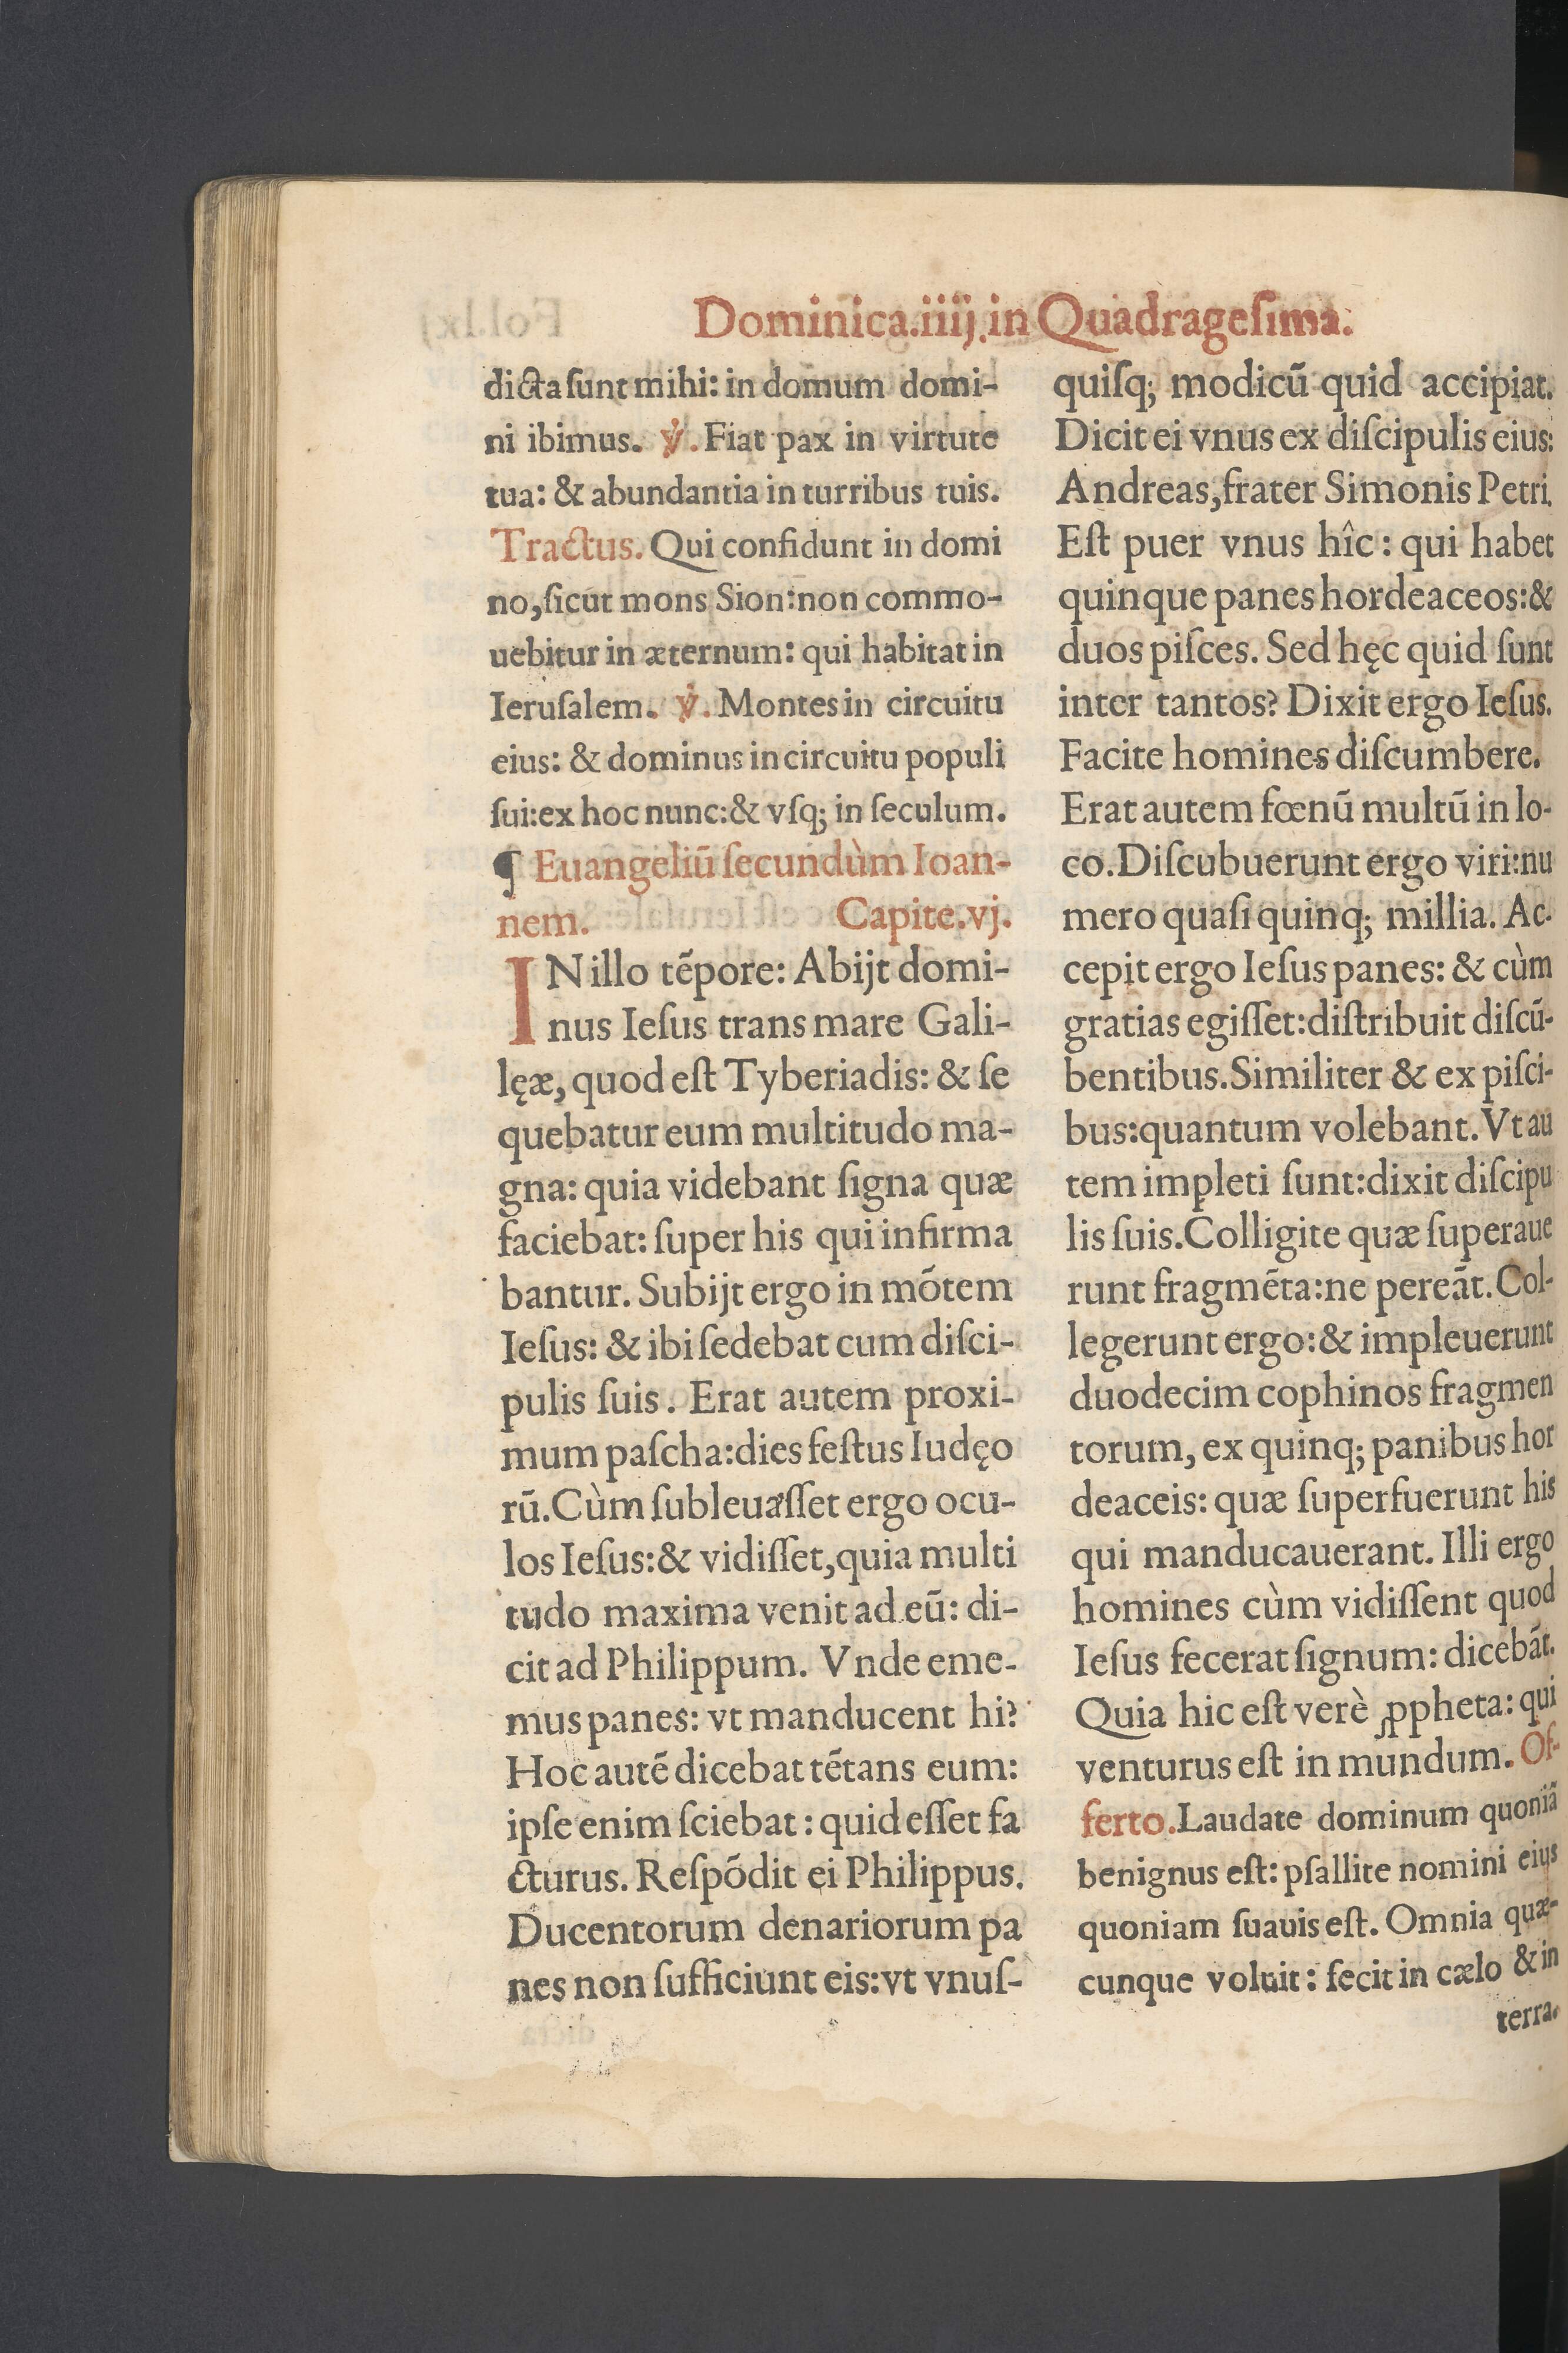 Dominica.iiij.in Quadrageſima.
dicta ſunt mihi: in domum domi-
ni ibimus. ℣. Fiat pax in virtute
tua: & abundantia in turribus tuis.
Tractus. Qui confidunt in domi
no, ſicut mons Sion: non commo-
uebitur in æternum: qui habitat in
Ieruſalem. ℣. Montes in circuitu
eius: & dominus in circuitu populi
ſui: ex hoc nunc: & vſq; in ſeculum.
¶ Euangeliũ ſecundùm Ioan-
nem. Capite.vj.
IN illo tẽpore: Abijt domi-
nus Ieſus trans mare Gali-
lęæ, quod eſt Tyberiadis: & ſe
quebatur eum multitudo ma-
gna: quia videbant ſigna quæ
faciebat: ſuper his qui infirma
bantur. Subijt ergo in mõtem
Ieſus: & ibi ſedebat cum diſci-
pulis ſuis. Erat autem proxi-
mum paſcha: dies feſtus Iudęo
rũ. Cùm ſubleuaſſet ergo ocu-
los Ieſus: & vidiſſet, quia multi
tudo maxima venit ad eũ: di-
cit ad Philippum. Vnde eme-
mus panes: vt manducent hi?
Hoc autẽ dicebat tẽtans eum:
ipſe enim ſciebat: quid eſſet fa
cturus. Reſpõdit ei Philippus.
Ducentorum denariorum pa
nes non ſufficiunt eis: vt vnuſ-
quiſq; modicũ quid accipiat.
Dicit ei vnus ex diſcipulis eius:
Andreas, frater Simonis Petri.
Eſt puer vnus hîc: qui habet
quinque panes hordeaceos: &
duos piſces. Sed hęc quid ſunt
inter tantos? Dixit ergo Ieſus.
Facite homines diſcumbere.
Erat autem fœnũ multũ in lo-
co. Diſcubuerunt ergo viri: nu
mero quaſi quinq; millia. Ac-
cepit ergo Ieſus panes: & cùm
gratias egiſſet: diſtribuit diſcũ-
bentibus. Similiter & ex piſci-
bus: quantum volebant. Vt au
tem impleti ſunt: dixit diſcipu
lis ſuis. Colligite quæ ſuperaue
runt fragmẽta: ne pereãt. Col-
legerunt ergo: & impleuerunt
duodecim cophinos fragmen
torum, ex quinq; panibus hor
deaceis: quæ ſuperfuerunt his
qui manducauerant. Illi ergo
homines cùm vidiſſent quod
Ieſus fecerat ſignum: dicebãt.
Quia hic eſt verè ꝓpheta: qui
venturus eſt in mundum. Of-
ferto. Laudate dominum quoniã
benignus eſt: pſallite nomini eius
quoniam ſuauis eſt. Omnia quæ-
cunque voluit: fecit in cælo & in
terra.